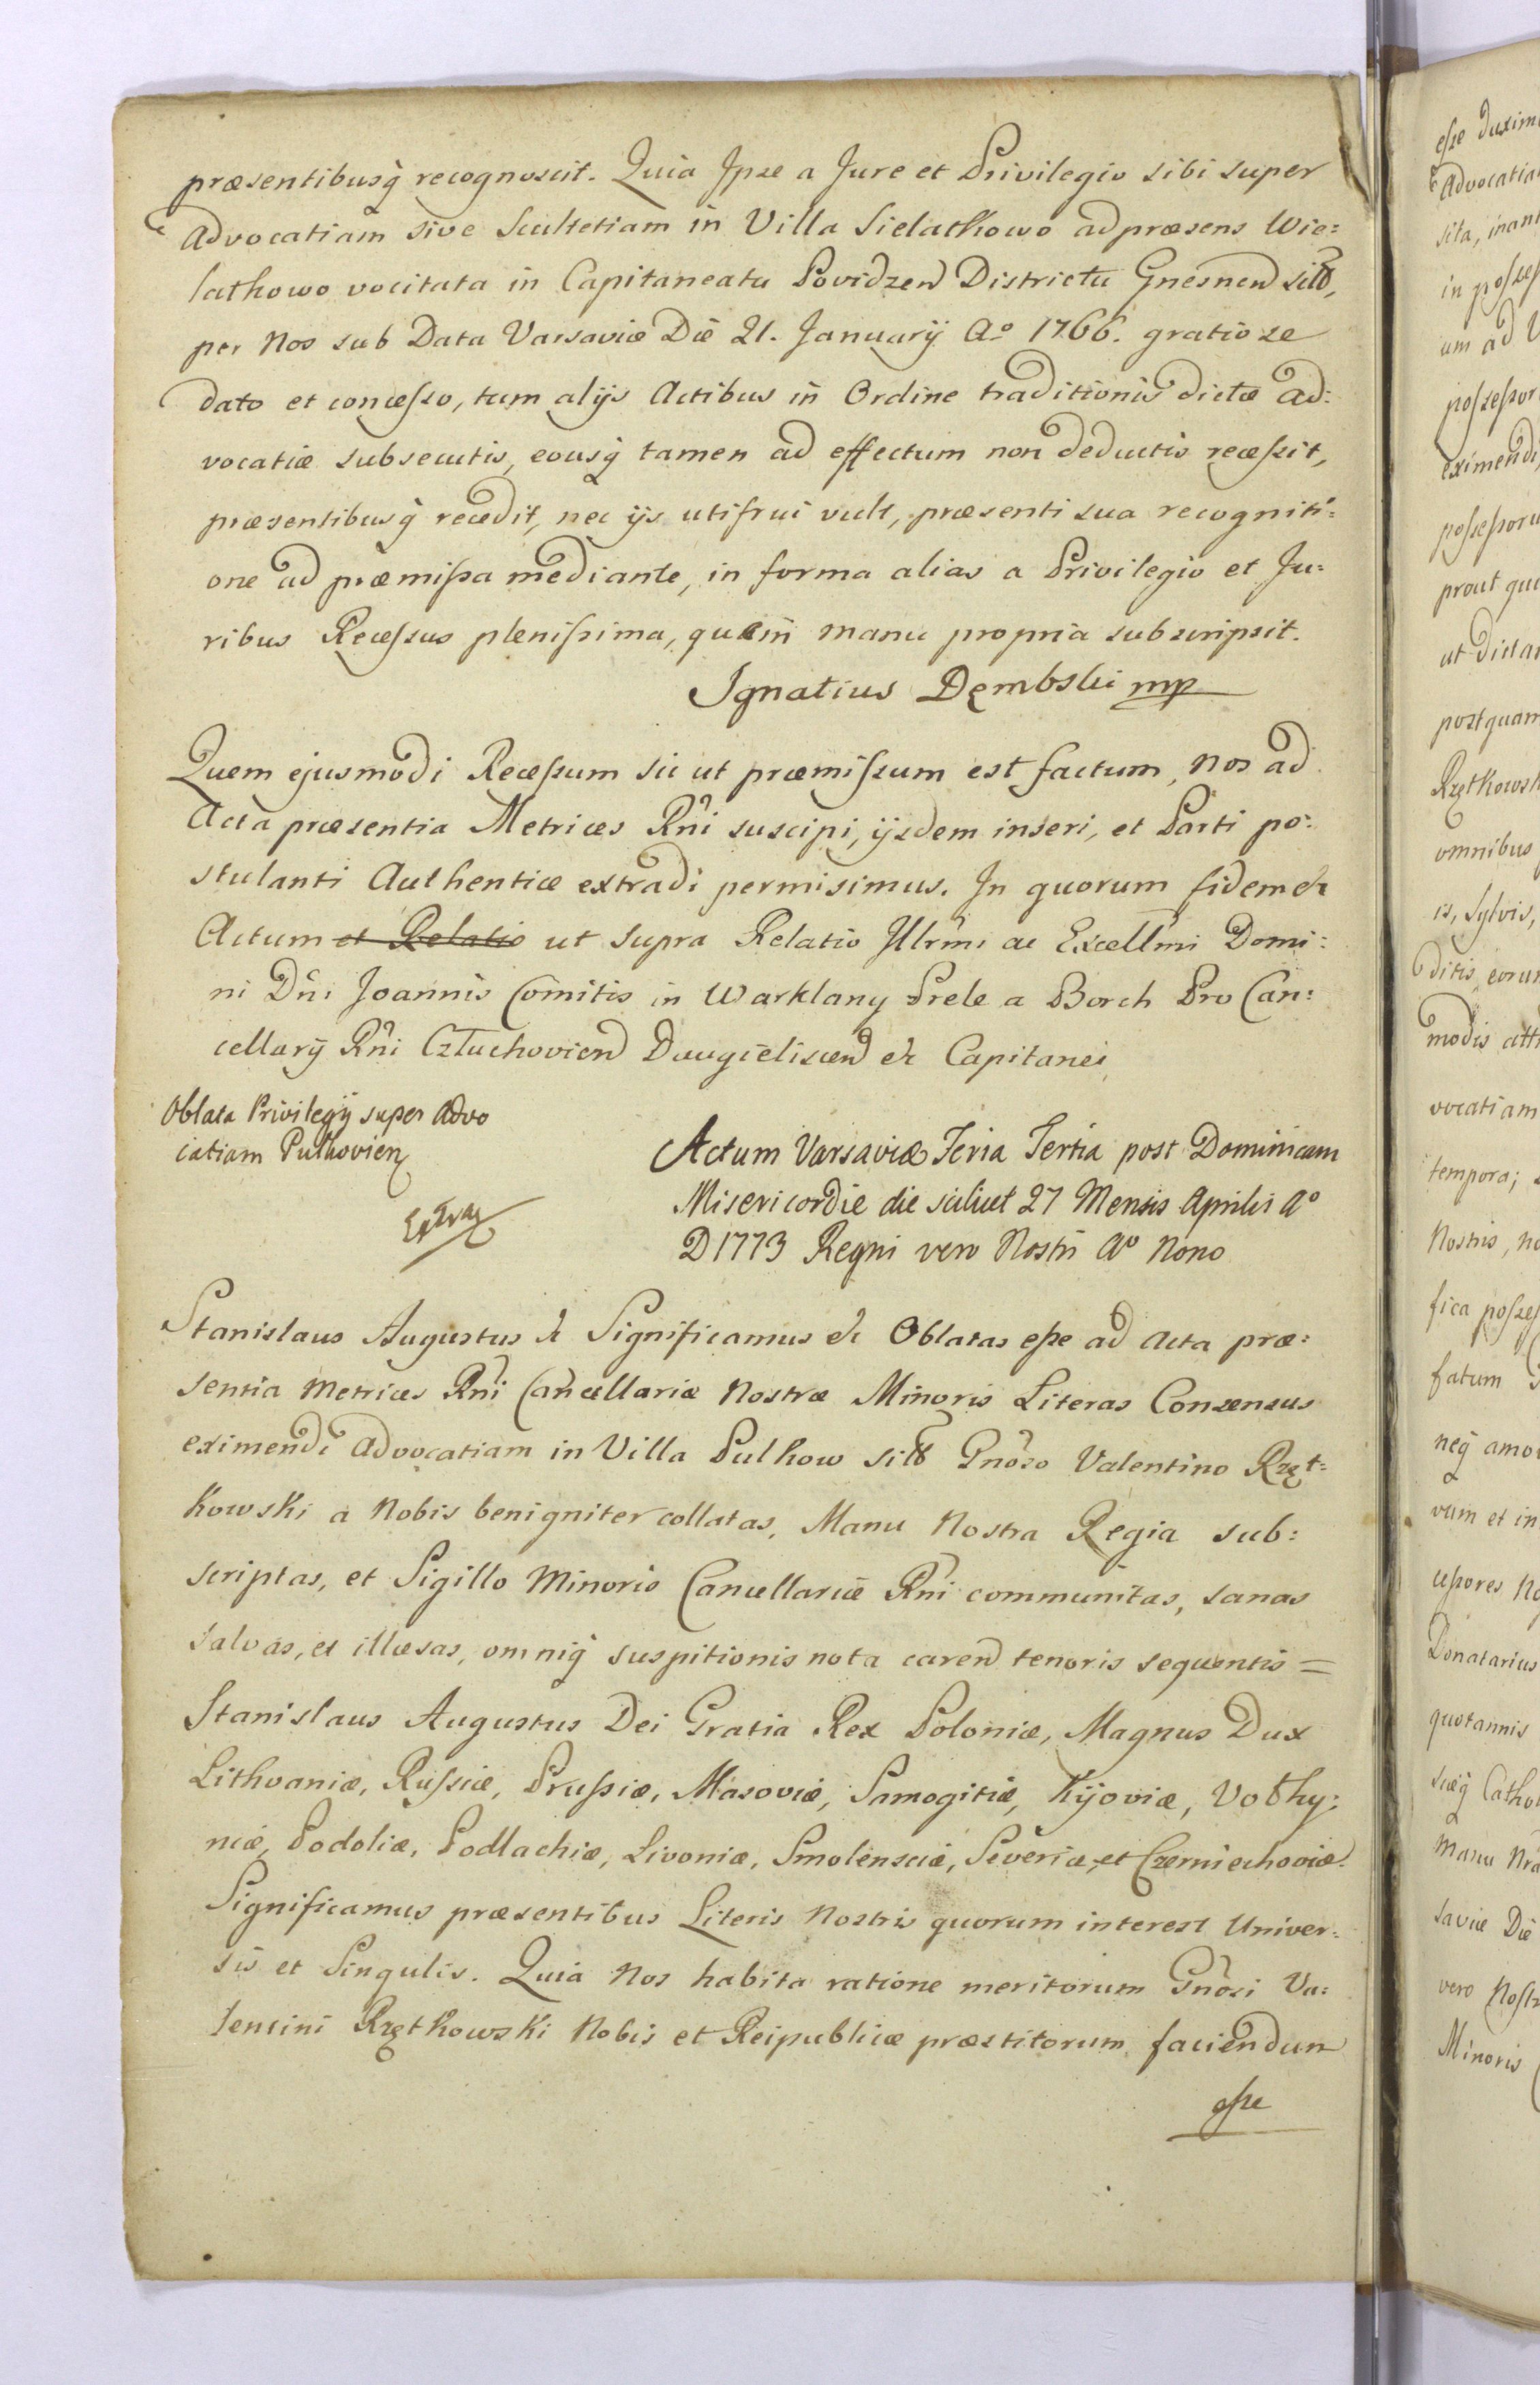 præsentibusq̀ recognoscit. Quia Ipse a Jure et Privilegio sibi super
Advocatiam sive Scultetiam in Villa Sielathowo ad præsens Wie:
lathowo vocitata in Capitaneatu Povidzen Districtu Gnesnen sitt,
per Nos sub Data Varsaviæ Die 21. Januarij Ao 1766. gratiose
dato et concesso, tum alijs Actibus in Ordine traditionis dictæ Ad:
vocatiæ subsecutis, eousq̀ tamen ad effectum non deductis recessit,
præsentibusq̀ recedit, nec ijs utifrui vult, præsenti sua recogniti:
one ad præmissa mediante, in forma alias a Privilegio et Ju:
ribus Recessus plenissima, quam manu propria subscripsit.
Ignatius Dęmbski mp
Quem ejusmodi Recessum sic ut præmissum est factum, Nos ad
Acta præsentia Metrices Rñi suscipi, ijsdem inseri, et Parti po:
stulanti Authentice extradi permisimus. In quorum fidem &c
Actum et Relatio ut supra Relatio Illr̃mi ac Excell̃mi Domi:
ni Dñi Joannis Comitis in Warklany Prele a Borch Pro Can:
cellarij Rñi Człuchovien Daugieliscen &c Capitanei
Oblata Privilegij super Advo
catiam Pulhovien
Extrax
Actum Varsaviæ Feria Tertia post Dominicam
Misericordie die scilicet 27 Mensis Aprilis Ao
D 1773 Regni vero Nostri Ao Nono
Stanislaus Augustus &c Significamus &c Oblatas esse ad Acta præ:
sentia Metrices Rñi Cancellariæ Nostræ Minoris Literas Consensus
eximendi Advocatiam in Villa Pulhow sitt Gnoso Valentino Rzęt:
kowski a Nobis benigniter collatas, Manu Nostra Regia sub:
scriptas, et Sigillo Minoris Cancellariæ Rñi communitas, sanas
salvas, et illæsas, omniq̀ suspitionis nota caren tenoris sequentis =
Stanislaus Augustus Dei Gratia Rex Poloniæ, Magnus Dux
Lithvaniæ, Russiæ, Prussiæ, Masoviæ, Samogitiæ, Kijoviæ, Volhy:
niæ, Podoliæ, Podlachiæ, Livoniæ, Smolensciæ, Severiæ, et Czerniechoviæ.
Significamus præsentibus Literis Nostris quorum interest Univer:
sis et Singulis. Quia Nos habita ratione meritorum Gnosi Va:
lentini Rzęthowski Nobis et Reipublicæ præstitorum, faciendum
esse